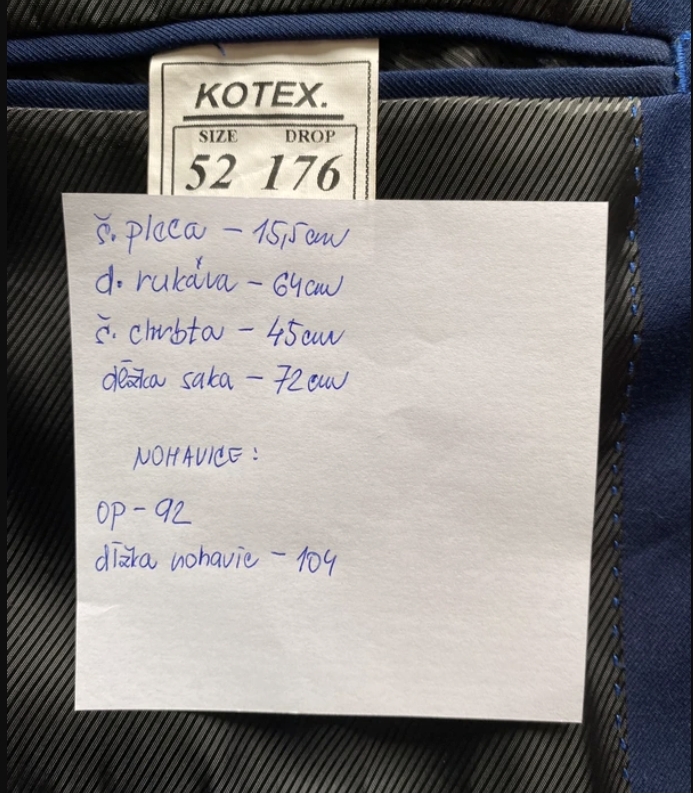 KOTEX.
SIZE DROP
52 176
š. pleca - 15,5cm
d. rukáva - 64cm
š. chrbta - 45cm
dĺžka saka - 72cm
NOHAVICE:
OP - 92
dĺžka nohavic - 104